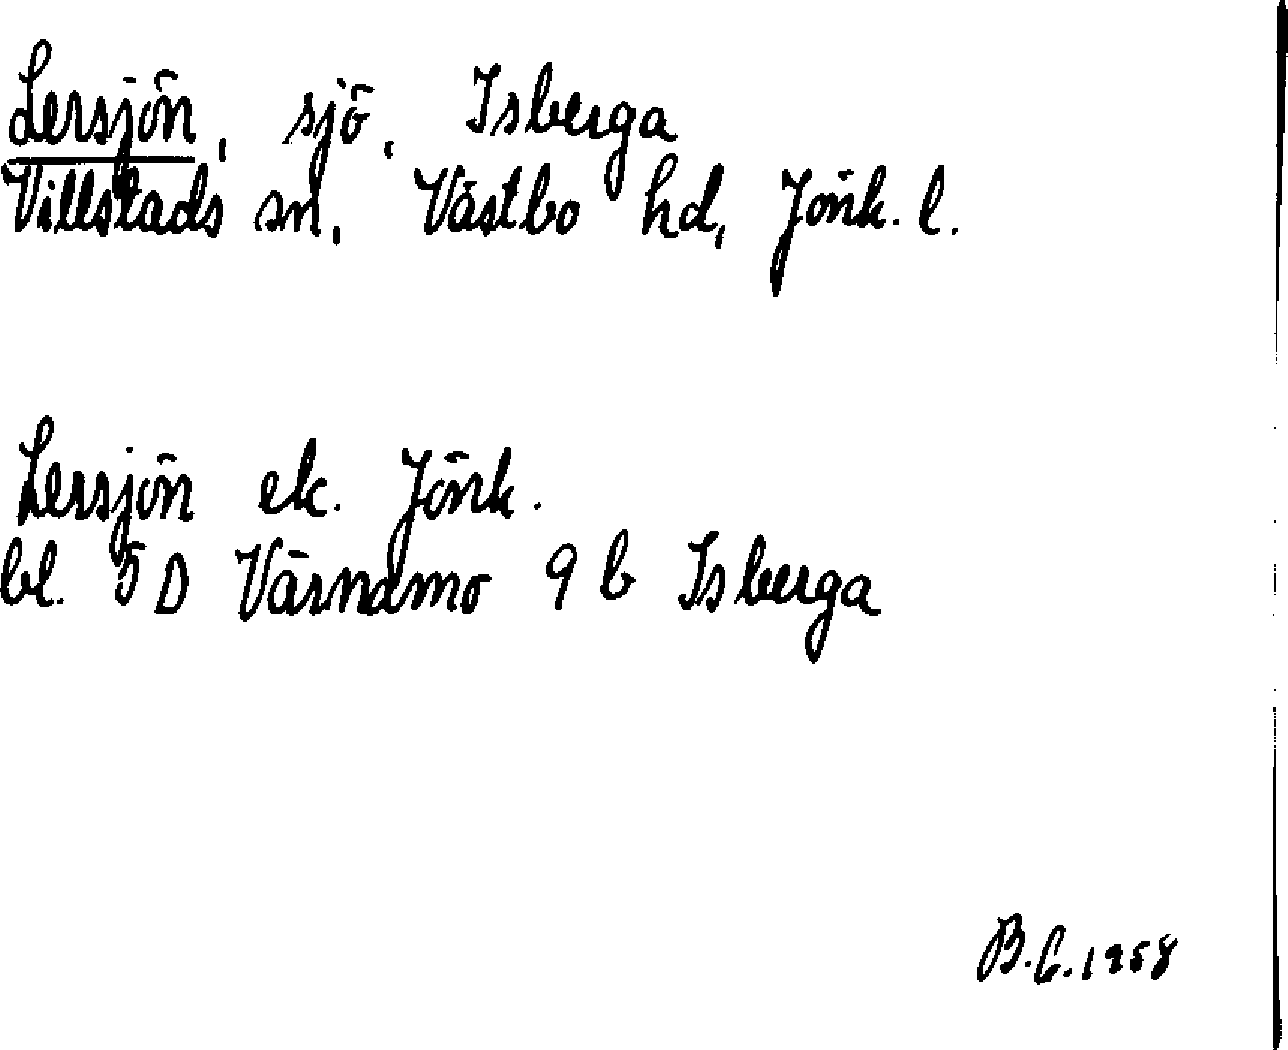 Lersjön, sjö, Isberga
Villstads sn, Västbo hd, Jönk. l.
Lersjön ek. Jönk.
bl. 5 D Värnamo 9 b Isberga
B.G. 1958